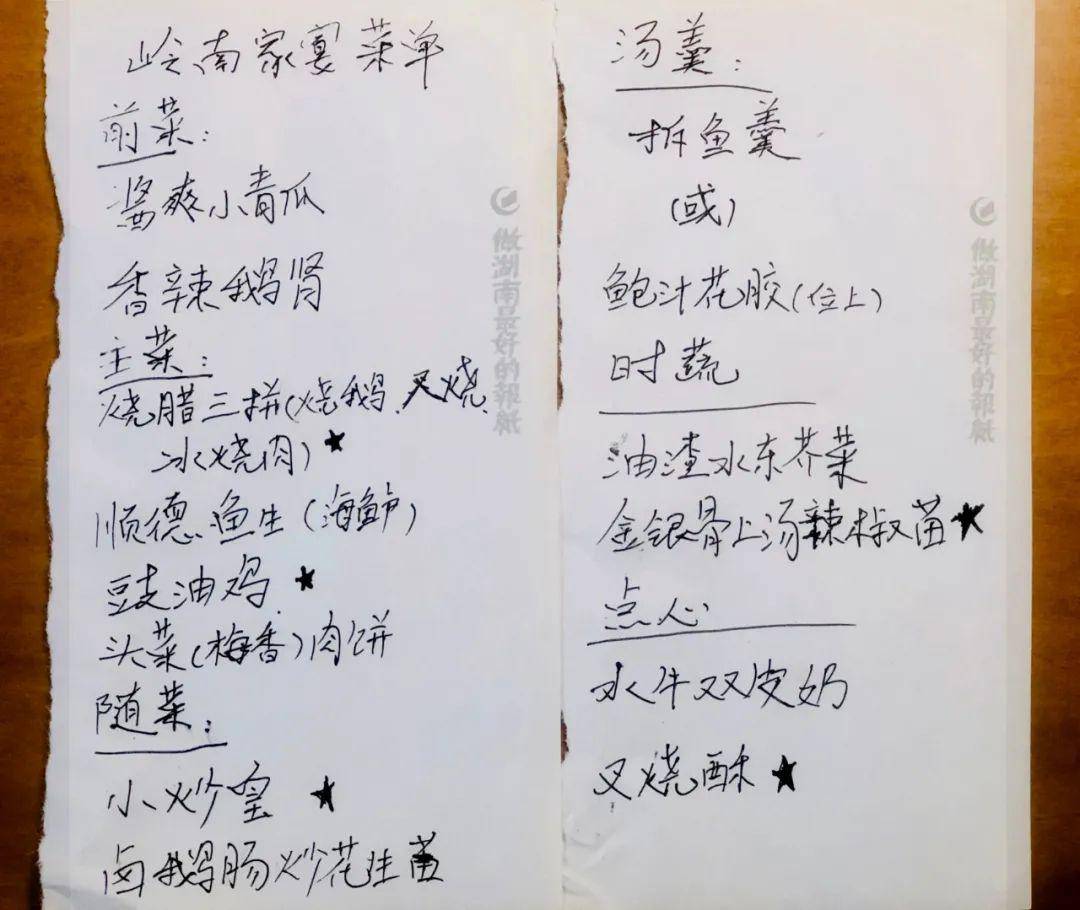 岭南家宴菜单
前菜：
酱爽小青瓜
香辣鹅肾
主菜：
烧腊三拼(烧鹅.叉烧.
冰烧肉)★
顺德鱼生(海鲈)
豉油鸡 ★
头菜(梅香)肉饼
随菜：
小炒皇 ★
卤鹅肠炒花生苗
做湖南最好的報紙
汤羹：
拆鱼羹
(或)
鲍汁花胶(位上)
时蔬
油渣水东芥菜
金银骨上汤辣椒苗★
点心
水牛双皮奶
叉烧酥★
做湖南最好的報紙